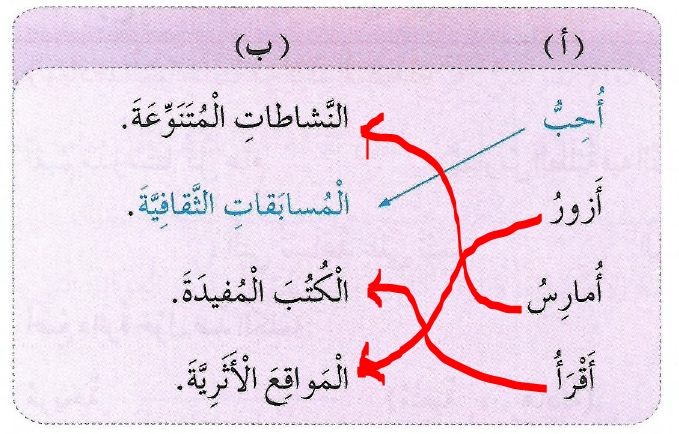 (أ) (ب)
أُحِبُّ النَّشاطاتِ الْمُتَنَوِّعَةَ.
أَزورُ الْمُسابَقاتِ الثَّقافِيَّةَ.
أُمارِسُ الْكُتُبَ الْمُفيدَةَ.
أَقْرَأُ الْمَواقِعَ الْأَثَرِيَّةَ.